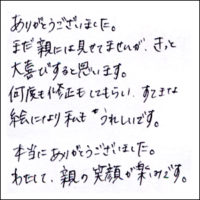 ありがとうございました。
まだ親には見せてませんが、きっと
大喜びすると思います。
何度も修正してもらい、すてきな
絵になり私もうれしいです。
本当にありがとうございました。
わたして、親の笑顔が楽しみです。